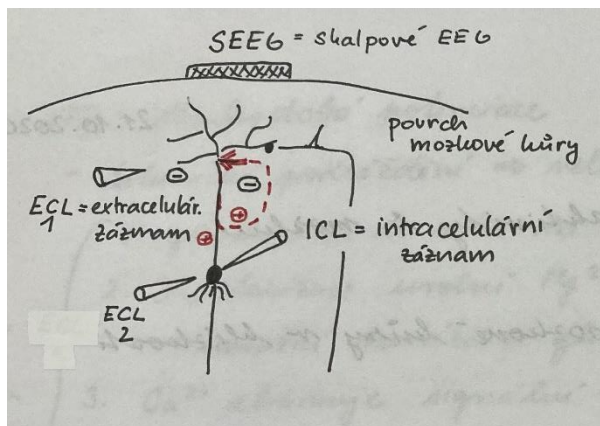 SEEG = skalpové EEG
povrch
mozkové kůry
ECL = extracelulár.
1
záznam
ICL = intracelulární
záznam
ECL
2